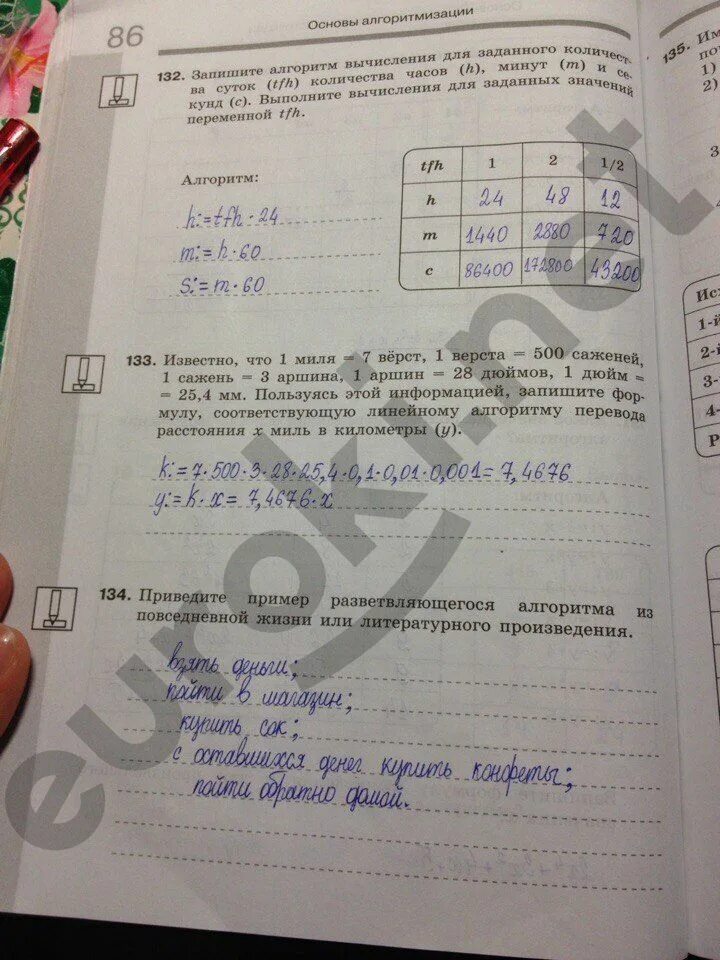 Основы алгоритмизации
86
132. Запишите алгоритм вычисления для заданного количест-
ва суток (tfh) количества часов (h), минут (m) и се-
кунд (c). Выполните вычисления для заданных значений
переменной tfh.
Алгоритм:
h:=tfh·24
m:=h·60
s:=m·60
tfh 1 2 1/2
h 24 48 12
m 1440 2880 720
c 86400 172800 43200
133. Известно, что 1 миля = 7 вёрст, 1 верста = 500 саженей,
1 сажень = 3 аршина, 1 аршин = 28 дюймов, 1 дюйм =
= 25,4 мм. Пользуясь этой информацией, запишите фор-
мулу, соответствующую линейному алгоритму перевода
расстояния x миль в километры (y).
k:=7·500·3·28·25,4·0,1·0,01·0,001=7,4676
y:=k·x=7,4676·x
134. Приведите пример разветвляющегося алгоритма из
повседневной жизни или литературного произведения.
взять деньги;
пойти в магазин;
купить сок;
с оставшихся денег купить конфеты;
пойти обратно домой.
135. Им
1)
2)
3
Исх
1-й
2-й
3-
4-
Р
euroki.net